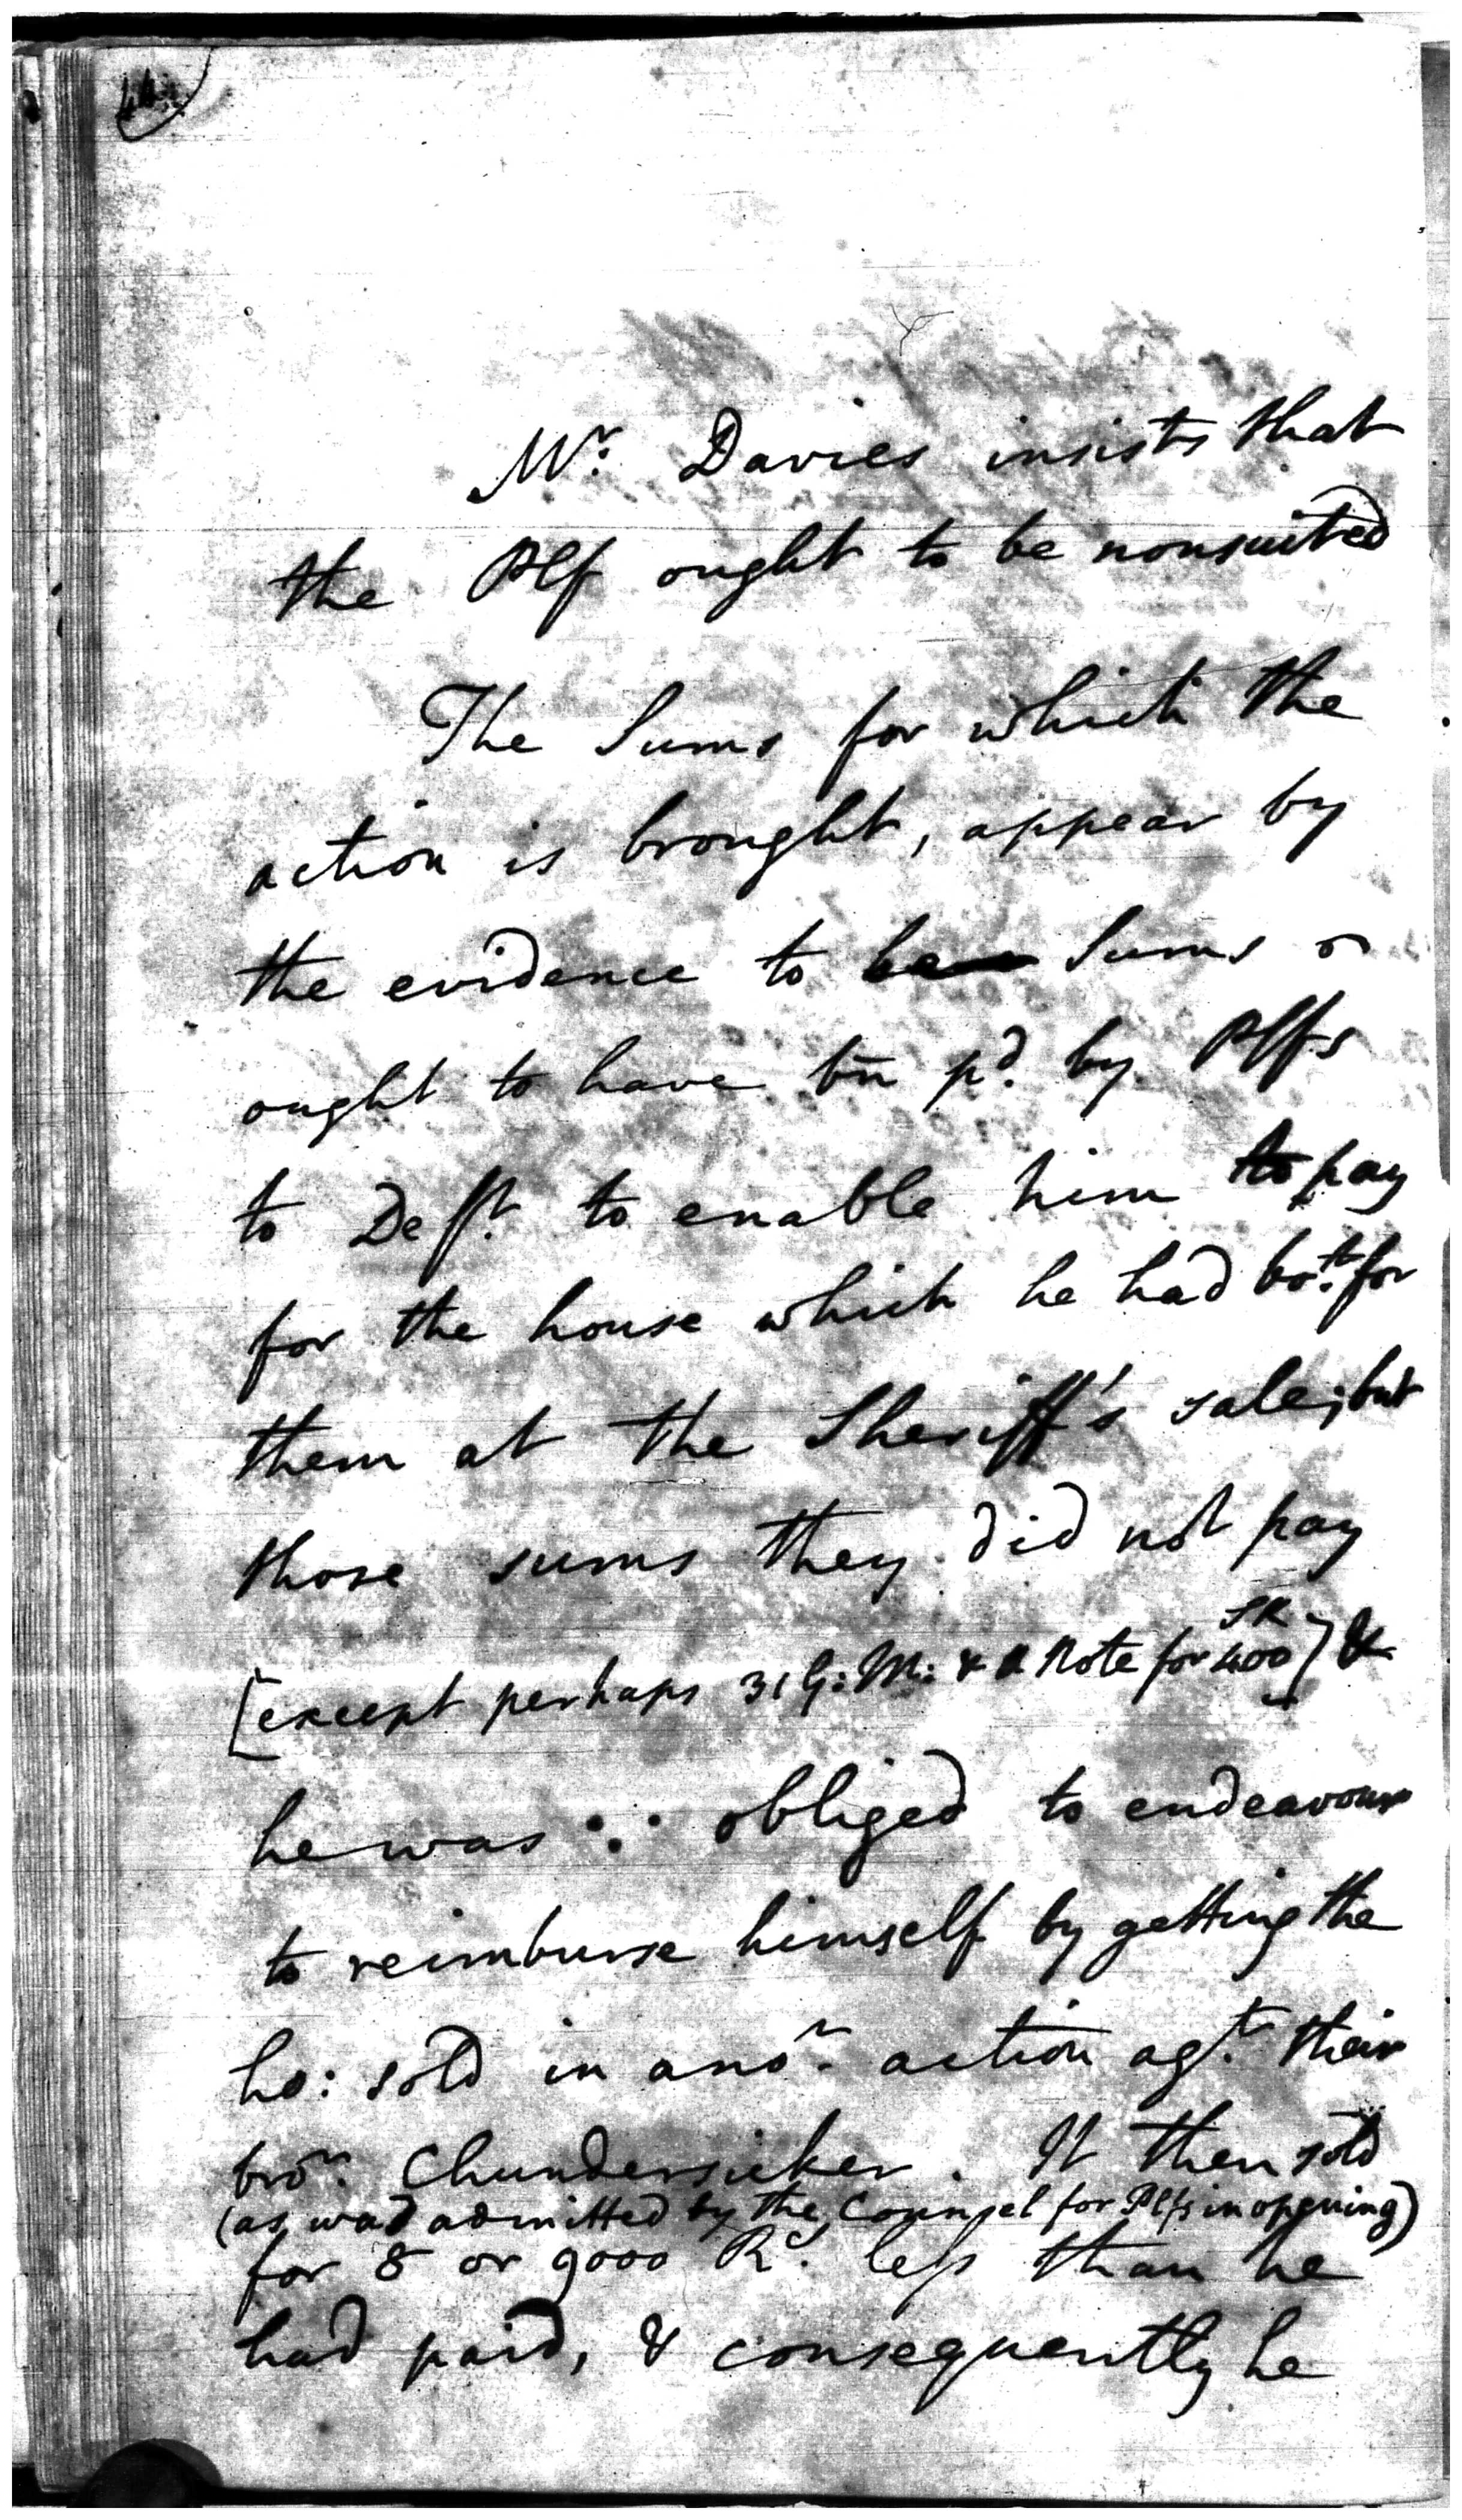 Mr. Davies insists that
the Plf ought to be nonsuited
The Sums for which the
action is brought, appear by
the evidence to be Sums
ought to have bn pd. by Plfs
to Deft. to enable him to pay
for the house which he had bot. for
them at the Sheriff's sale; but
those sums they did not pay
[except perhaps 31 G: M: & a Note for 400 SR] &
he was ∴ obliged to endeavour
to reimburse himself by getting the
ho: sold in anor. action agt. their
bror. Chundersieker. It then sold
(as was admitted by the Counsel for Plfs in opening)
for 8 or 9000 Rs. less than he
had paid, & consequently he